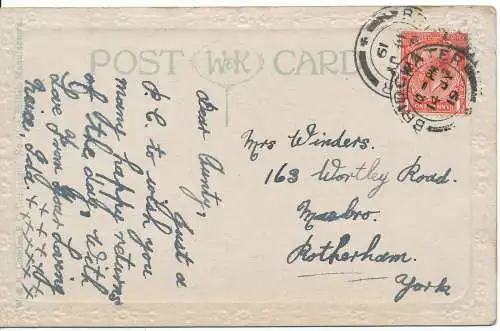 POST W&K CARD
Dear Aunty,
Just a
P.C. to wish you
many happy returns
of the day. With
Love from Your Loving
Neice,
Mrs Winders.
163 Wortley Road.
Masbro.
Rotherham.
York
BRIDGWATER